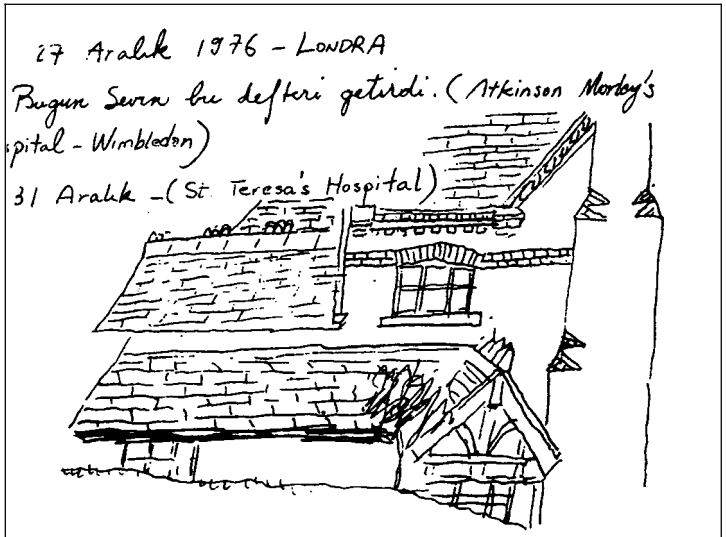 27 Aralık 1976 - LONDRA
Bugun Sevin bu defteri getirdi. (Atkinson Morley's
spital - Wimbledon)
31 Aralık - (St. Teresa's Hospital)